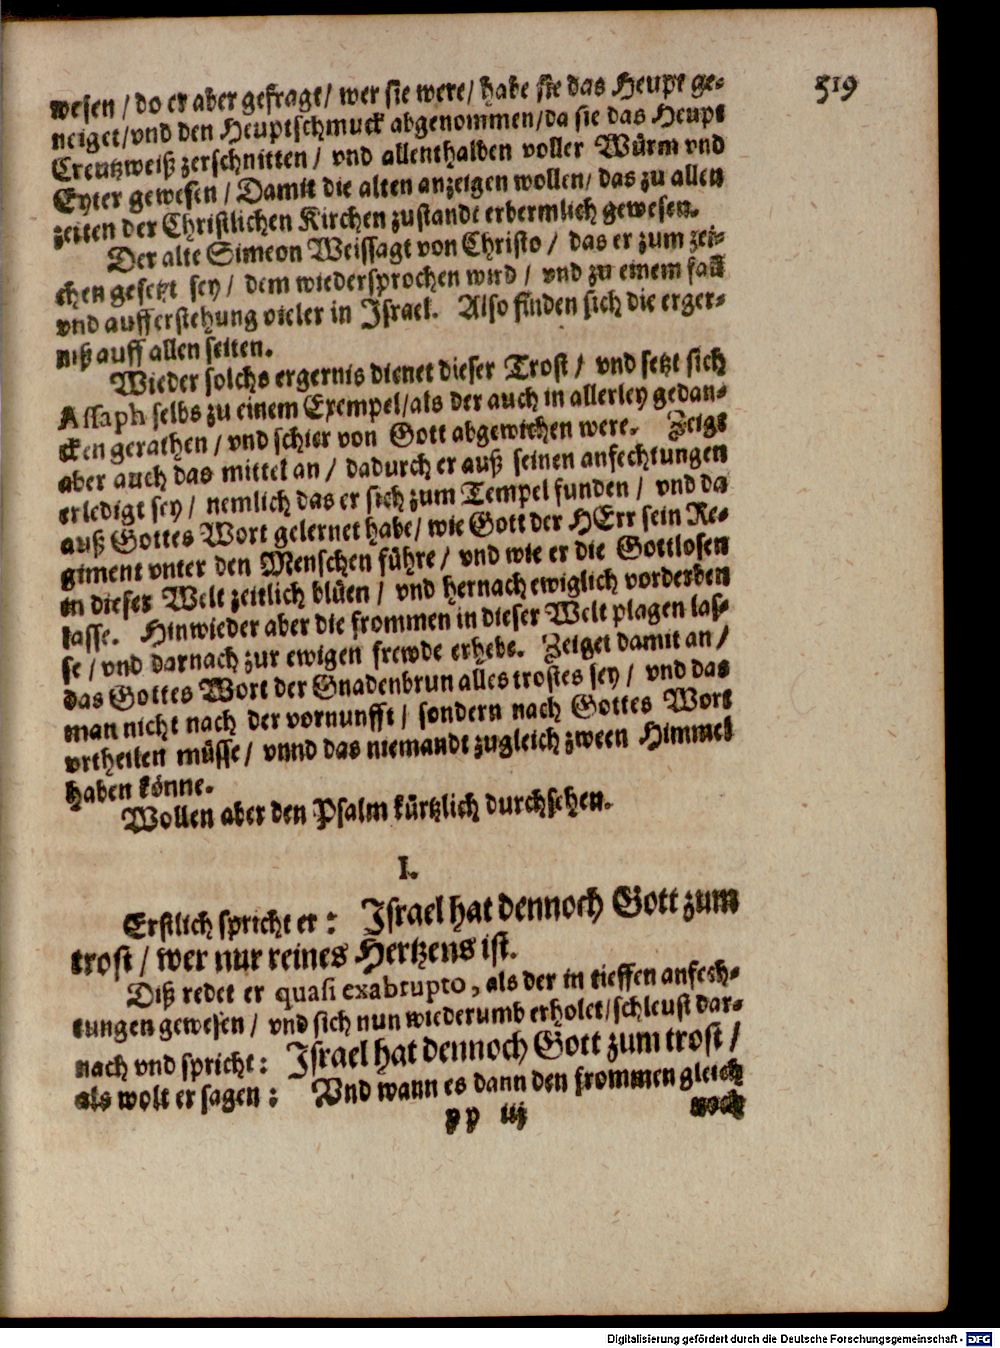 519
wesen / do er aber gefragt / wer sie were / habe sie das Heupt ge-
neiget / vnd den Heuptschmuck abgenommen / da sie das Heupt
Creutzweiß zerschnitten / vnd allenthalben voller Würm vnd
Eyter gewesen / Damit die alten anzeigen wollen / das zu allen
zeiten der Christlichen Kirchen zustandt erbermlich gewesen.
Der alte Simeon Weissagt von Christo / das er zum zei-
chen gesetzt sey / dem wiedersprochen wird / vnd zu einem fall
vnd aufferstehung vieler in Israel. Also finden sich die erger-
niß auff allen seiten.
Wieder solchs ergernis dienet dieser Trost / vnd setzt sich
Assaph selbs zu einem Exempel / als der auch in allerley gedan-
cken gerathen / vnd schier von Gott abgewichen were. Zeigt
aber auch das mittel an / dadurch er auß seinen anfechtungen
erledigt sey / nemlich das er sich zum Tempel funden / vnd da
auß Gottes Wort gelernet habe / wie Gott der HErr sein Re-
giment vnter den Menschen führe / vnd wie er die Gottlosen
in dieser Welt zeitlich blüen / vnd hernach ewiglich vorderben
lasse. Hinwieder aber die frommen in dieser Welt plagen las-
se / vnd darnach zur ewigen frewde erhebe. Zeiget damit an /
das Gottes Wort der Gnadenbrun alles trostes sey / vnd das
man nicht nach der vornunfft / sondern nach Gottes Wort
vrtheilen müsse / vnnd das niemandt zugleich zween Himmel
haben könne.
Wollen aber den Psalm kürtzlich durchsehen.
I.
Erstlich spricht er : Israel hat dennoch Gott zum
trost / wer nur reines Hertzens ist.
Diß redet er quasi exabrupto, als der in tieffen anfech-
tungen gewesen / vnd sich nun wiederumb erholet / schleust dar-
nach vnd spricht : Israel hat dennoch Gott zum trost /
als wolt er sagen : Vnd wann es dann den frommen gleich
pp iij noch
Digitalisierung gefördert durch die Deutsche Forschungsgemeinschaft - DFG